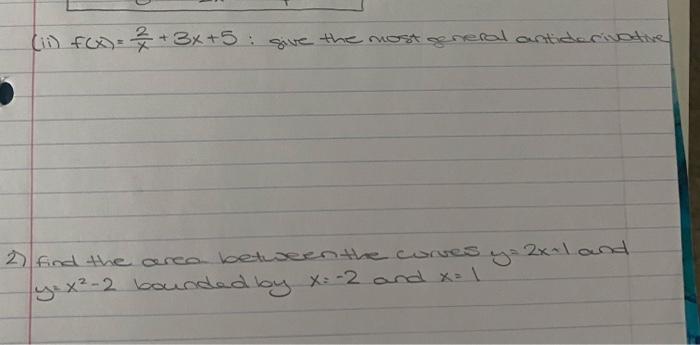 (ii) f(x) = 2/x + 3x + 5 : give the most general antiderivative
2) find the area between the curves y = 2x+1 and
y = x² - 2 bounded by x = -2 and x = 1